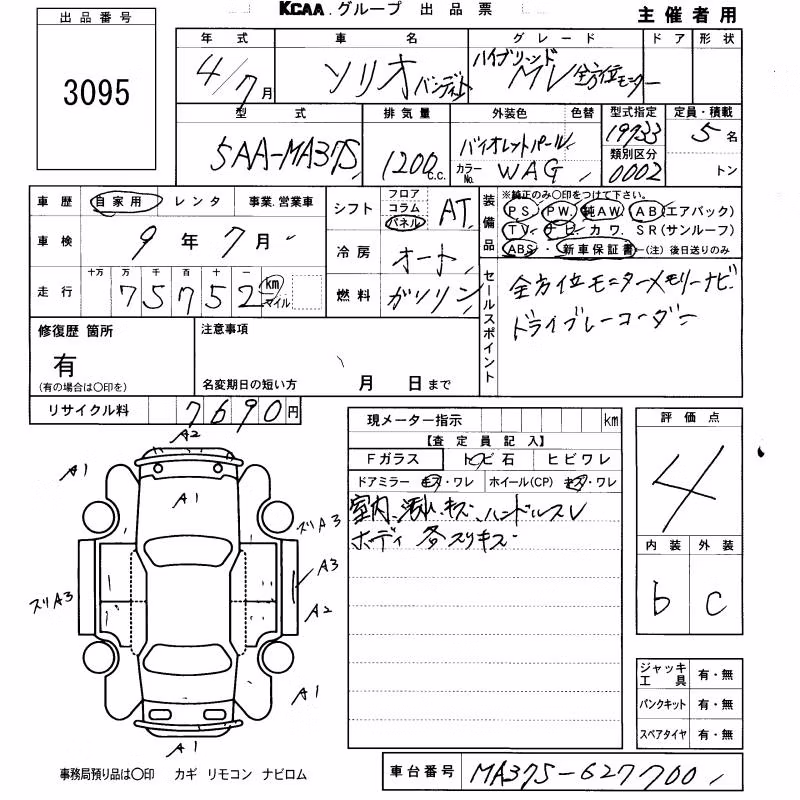 KCAA.グループ 出品票
主催者用
出品番号
3095
年式 車名 グレード ドア 形状
4/7月 ソリオバンディット ハイブリッドMV全方位モニター
型式 排気量 外装色 色替 型式指定 定員・積載
5AA-MA37S 1200c.c. バイオレットパール 19733 5名
カラーNo. WAG 類別区分 0002 トン
車歴 自家用 レンタ 事業.営業車
シフト フロア コラム パネル AT
装備品 ※純正のみ○印をつけて下さい。
PS. PW. 純AW. AB(エアバック)
TV. ナビ. カワ. SR(サンルーフ)
ABS・新車保証書―(注) 後日送りのみ
車検 9年7月
冷房 オート
走行 十万 万 千 百 十 一 km マイル
75752
燃料 ガソリン
セールスポイント
全方位モニターメモリーナビ
ドライブレコーダー
修復歴 箇所
有
(有の場合は○印を)
注意事項
名変期日の短い方 月 日まで
リサイクル料 7690円
現メーター指示 km
【査定員記入】
Fガラス トビ石 ヒビワレ
ドアミラー キズ・ワレ ホイール(CP) キズ・ワレ
室内、汚れ、キズ、ハンドルスレ
ボディ 各スリキズ
評価点
4
内装 外装
b c
A2
A1
A1
スリA3
A3
スリA3
A2
A1
A1
ジャッキ工具 有・無
パンクキット 有・無
スペアタイヤ 有・無
事務局預り品は○印 カギ リモコン ナビロム
車台番号 MA37S-627700